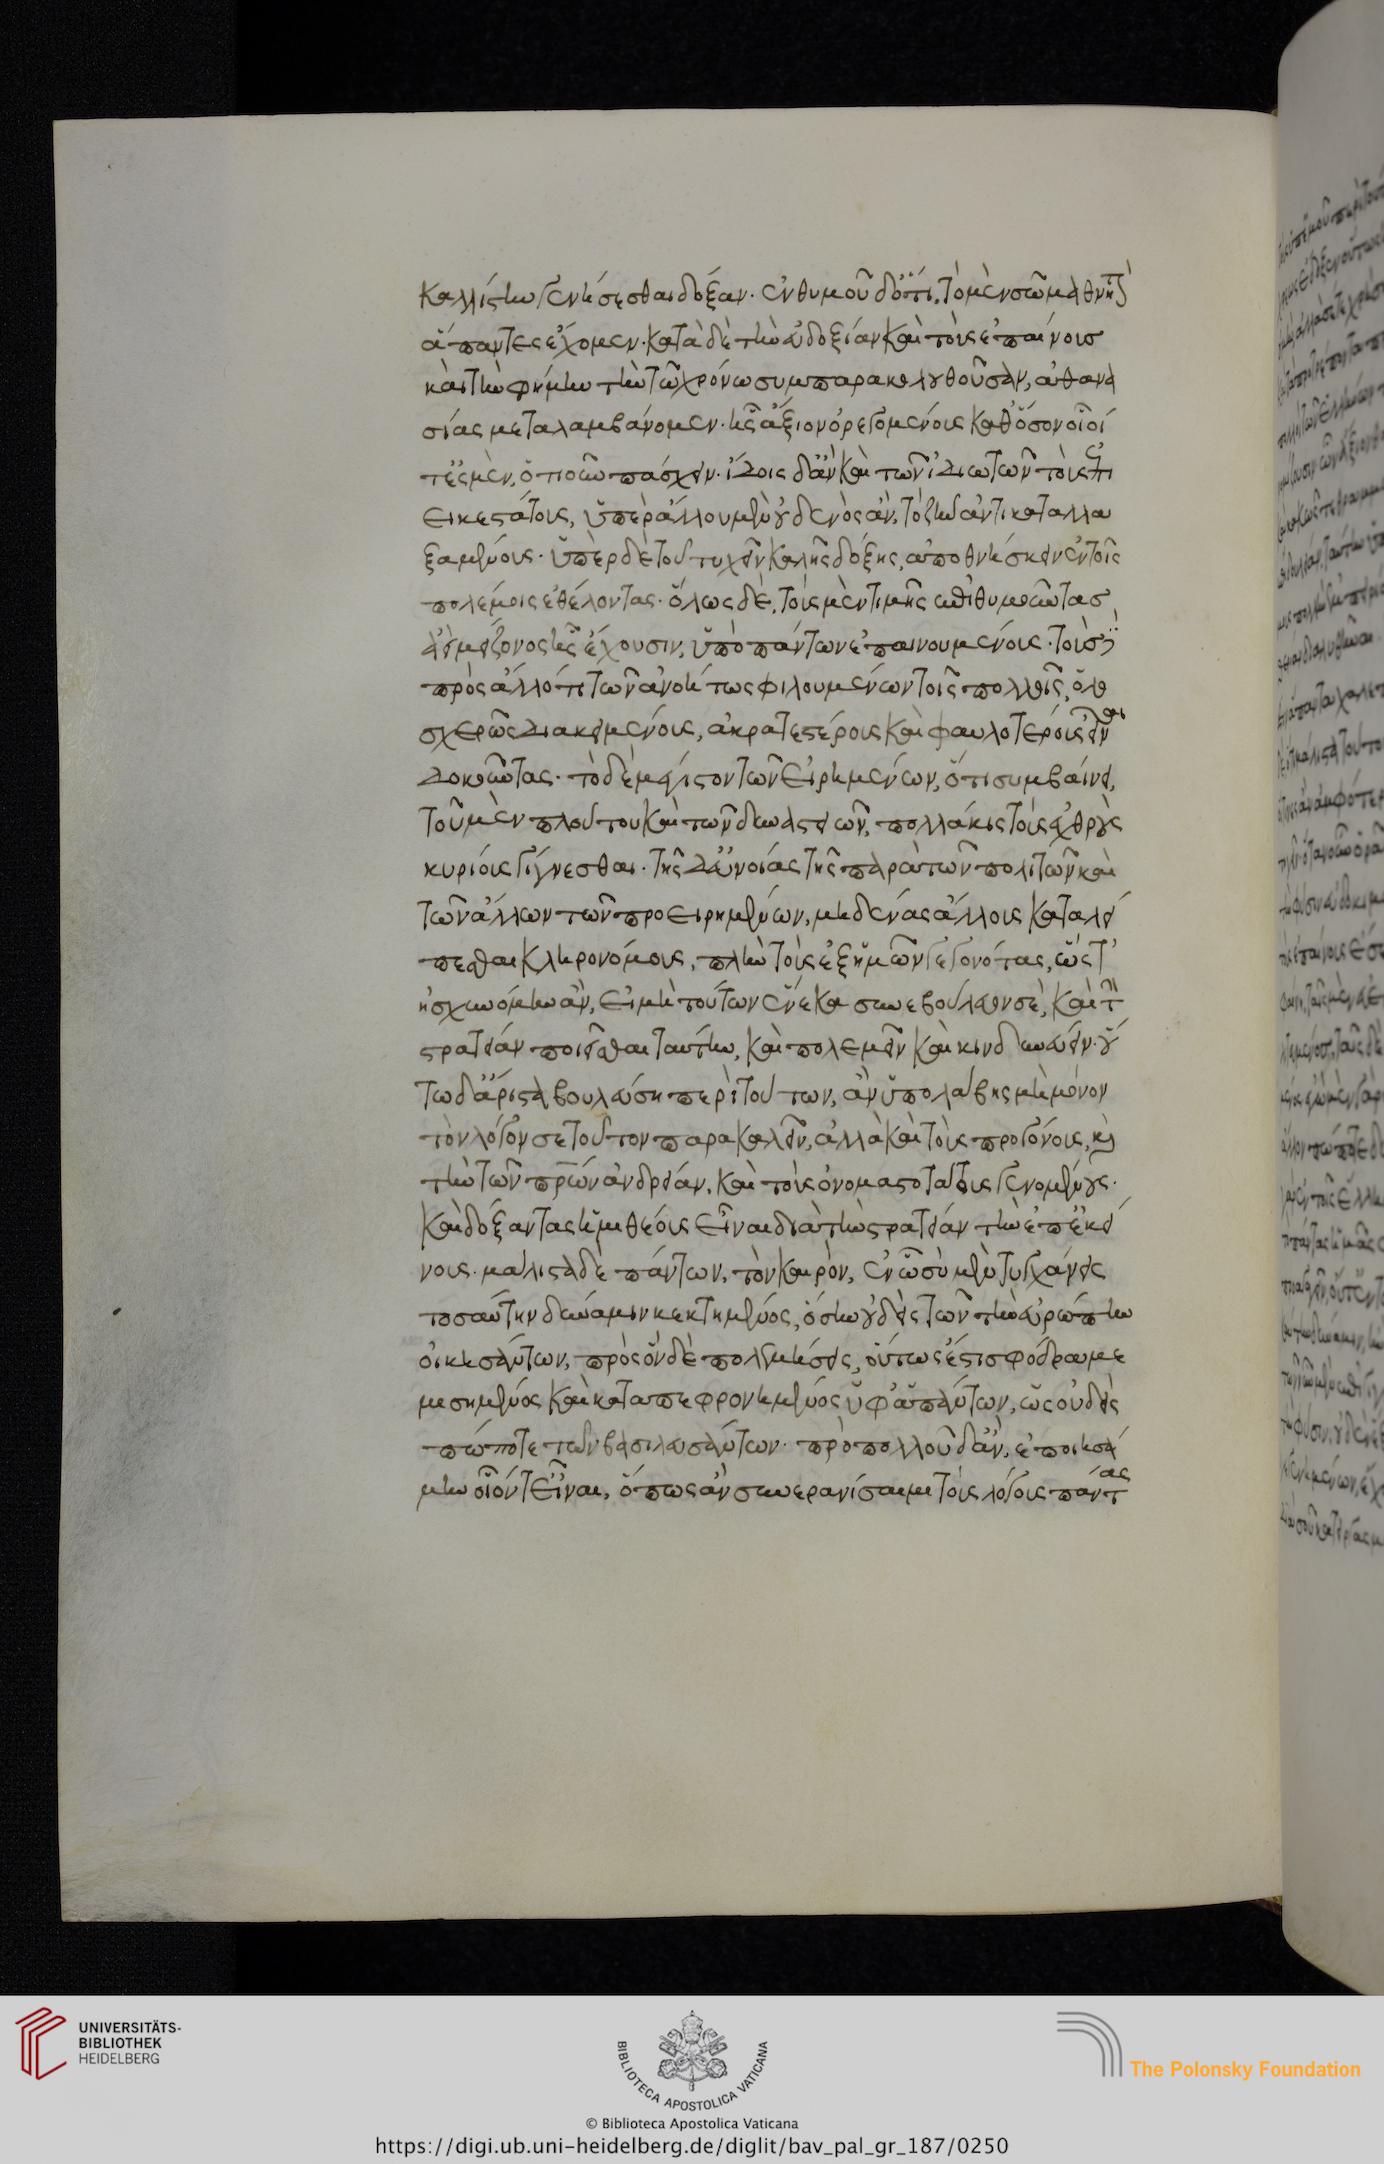 καλλίστην γενήσεσθαι δόξαν. ἐνθυμοῦ δ' ὅτι, τὸ μὲν σῶμα θνητὸν
ἅπαντες ἔχομεν. κατὰ δὲ τὴν εὐδοξίαν καὶ τοὺς ἐπαίνους
καὶ τὴν φήμην τὴν τῶ χρόνω συμπαρακολουθοῦσαν, ἀθανα
σίας μεταλαμβάνομεν. ἧς ἄξιον ὀρεγομένους καθ' ὅσον οἷοί
τ' ἐσμὲν, ὁτιοῦν πάσχειν. ἴδοις δ' ἂν καὶ τῶν ἰδιωτῶν τοὺς ἐπι
εικεστάτους, ὑπὲρ ἄλλου μὲν οὐδενὸς ἂν, τὸ ζῆν ἀντικαταλλα
ξαμένους. ὑπὲρ δὲ τοῦ τυχεῖν καλῆς δόξης, ἀποθνήσκειν ἐν τοῖς
πολέμοις ἐθέλοντας. ὅλως δὲ, τοὺς μὲν τιμῆς ἐπιθυμοῦντας
ἀεὶ μείζονος ἧς ἔχουσιν, ὑπὸ πάντων ἐπαινουμένους. τοὺς δὲ
πρὸς ἄλλό τι τῶν ἀνοήτως φιλουμένων τοῖς πολλοῖς, ὁλο
σχερῶς διακειμένους, ἀκρατεστέρους καὶ φαυλοτέρους εἶναι
δοκοῦντας. τὸ δὲ μέγιστον τῶν εἰρημένων, ὅτι συμβαίνει,
τοῦ μὲν πλούτου καὶ τῶν δυναστειῶν, πολλάκις τοὺς ἐχθροὺς
κυρίους γίγνεσθαι. τῆς δ' εὐνοίας τῆς παρὰ τῶν πολιτῶν καὶ
τῶν ἄλλων τῶν προειρημένων, μηδένας ἄλλους καταλεί
πεσθαι κληρονόμους, πλὴν τοὺς ἐξ ἡμῶν γεγονότας, ὥστ'
ἠσχυνόμην ἂν, εἰ μὴ τούτων ἕνεκα συνεβούλευον σὲ, καὶ τὴν
στρατείαν ποιεῖσθαι ταύτην, καὶ πολεμεῖν καὶ κινδυνεύειν. οὕ
τω δ' ἄριστα βουλεύση περὶ τούτων, ἂν ὑπολάβης μὴ μόνον
τὸν λόγόν σε τοῦτον παρακαλεῖν, ἀλλὰ καὶ τοὺς προγόνους, καὶ
τὴν τῶν πρσῶν ἀνδρείαν, καὶ τοὺς ὀνομαστοτάτους γενομένους.
καὶ δόξαντας ἡμιθέους εἶναι διὰ τὴν στρατείαν τὴν ἐπ' ἐκεί
νους. μάλιστα δὲ πάντων, τὸν καιρὸν, ἐν ὧ σὺ μὲν τυγχάνεις
τοσαύτην δύναμιν κεκτημένος, ὅσην οὐδεὶς τῶν τὴν εὐρώπην
οἰκησάντων, πρὸς ὃν δὲ πολεμήσεις, οὕτως ἐστὶ σφόδρα με
μισημένος καὶ καταπεφρονημένος ὑφ' ἁπάντων, ὡς οὐδεὶς
πώποτε τῶν βασιλευσάντων. πρὸ πολλοῦ δ' ἂν, ἐποιησά
μην οἷόν τ' εἶναι, ὅπως ἂν συνερανίσαιμι τοὺς λόγους πάντας
UNIVERSITÄTS-
BIBLIOTHEK
HEIDELBERG
BIBLIOTECA APOSTOLICA VATICANA
The Polonsky Foundation
© Biblioteca Apostolica Vaticana
https://digi.ub.uni-heidelberg.de/diglit/bav_pal_gr_187/0250